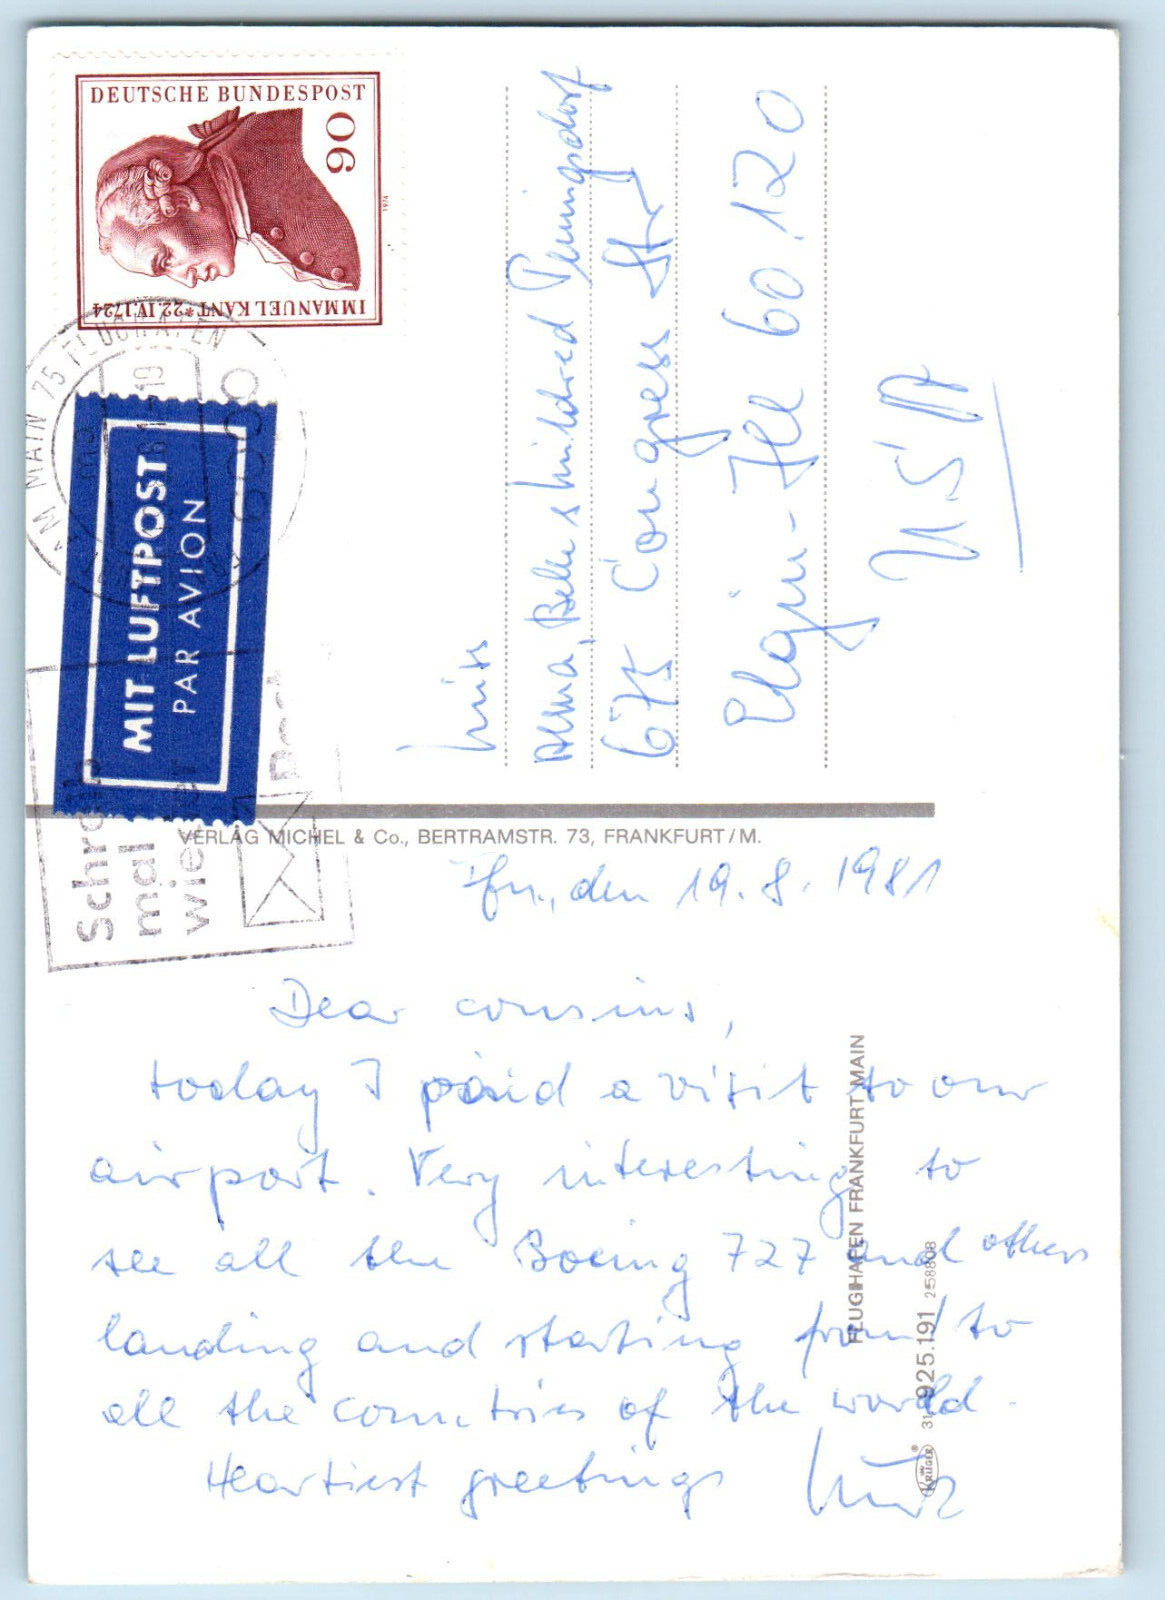 DEUTSCHE BUNDESPOST
90
1974
IMMANUEL KANT *22.IV.1724
AM MAIN 75 FLUGHAFEN
6000
MIT LUFTPOST
PAR AVION
Schreib
mal
wieder
Post
Miss
Alma, Belle & Mildred Pluningsdorf
675 Congress Str
Elgin - Ill 60.120
USA
VERLAG MICHEL & Co., BERTRAMSTR. 73, FRANKFURT/M.
Ffm., den 19. 8. 1981
Dear cousins,
today I paid a visit to our
airport. Very interesting to
see all the Boeing 727 and others
landing and starting from/to
all the countries of the world.
Heartiest greetings
FLUGHAFEN FRANKFURT MAIN
925.191 258808
KRÜGER